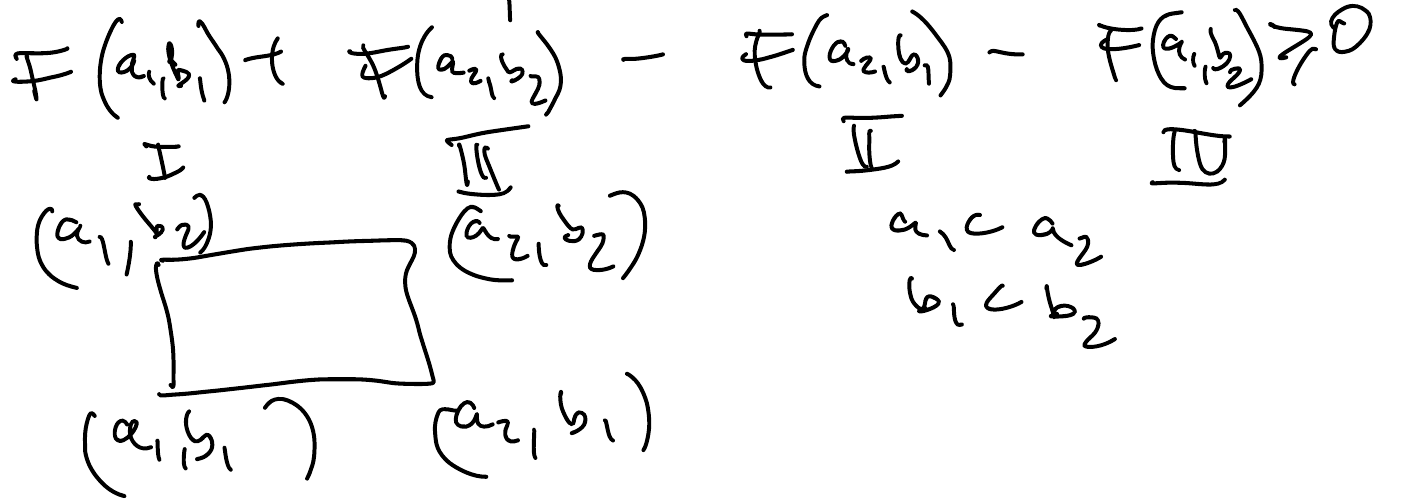 F(a₁,b₁) + F(a₂,b₂) − F(a₂,b₁) − F(a₁,b₂) ≥ 0
I III II IV
(a₁,b₂) (a₂,b₂) a₁ < a₂
b₁ < b₂
(a₁,b₁) (a₂,b₁)